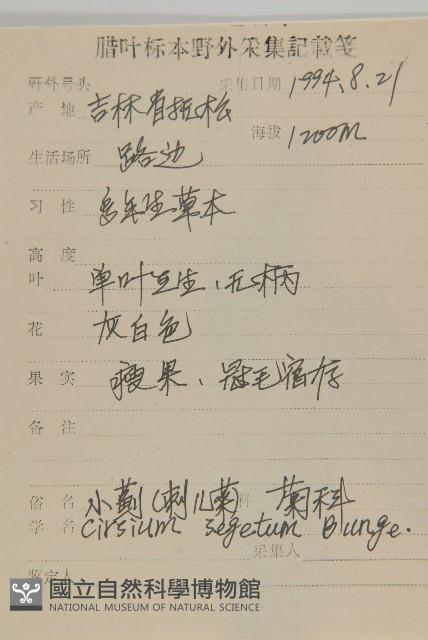 腊叶标本野外采集記載箋
野外号头 采集日期 1994.8.21
产地 吉林省抚松
海拔 1200m
生活场所 路边
习性 多年生草本
高度
叶 单叶互生、无柄
花 灰白色
果实 瘦果、冠毛宿存
备注
俗名 小蓟(刺儿菜 科 菊科
学名 Cirsium segetum Bunge.
采集人
鉴定人
國立自然科學博物館
NATIONAL MUSEUM OF NATURAL SCIENCE